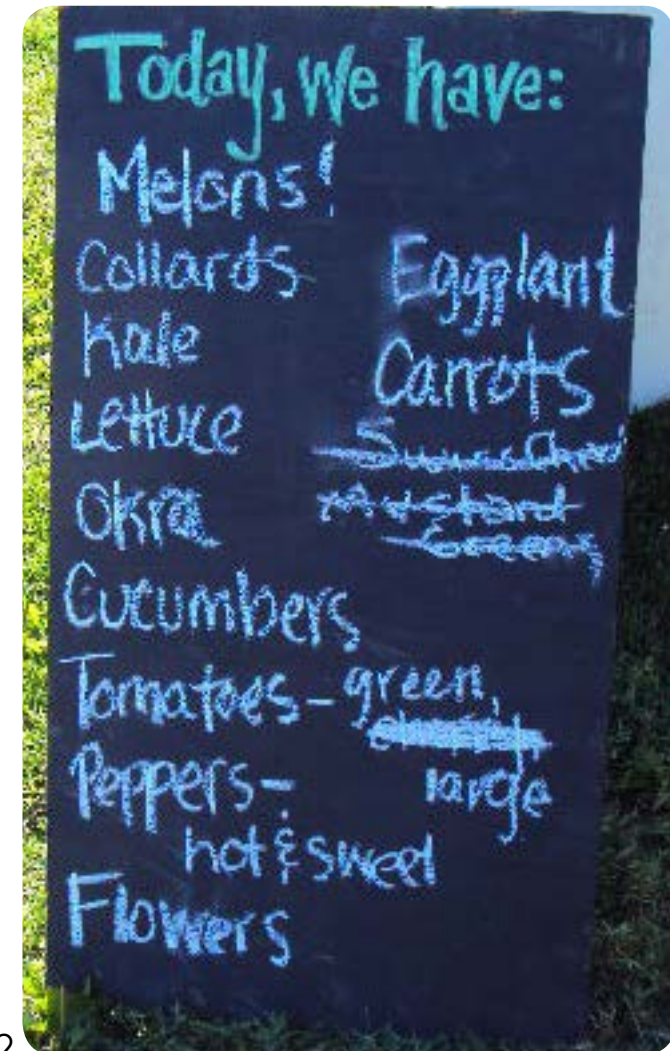 Today, we have:
Melons!
Collards
Kale
Lettuce
Okra
Cucumbers
Tomatoes - green,
large
Peppers -
hot & sweet
Flowers
Eggplant
Carrots
Swiss Chard
Mustard
Greens
2